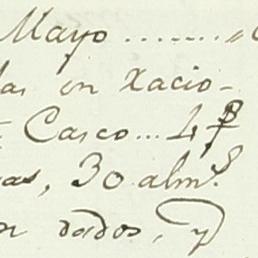 Mayo ........
das en xacio-
Casco... 4 p
as, 30 alm.s
en dados, y